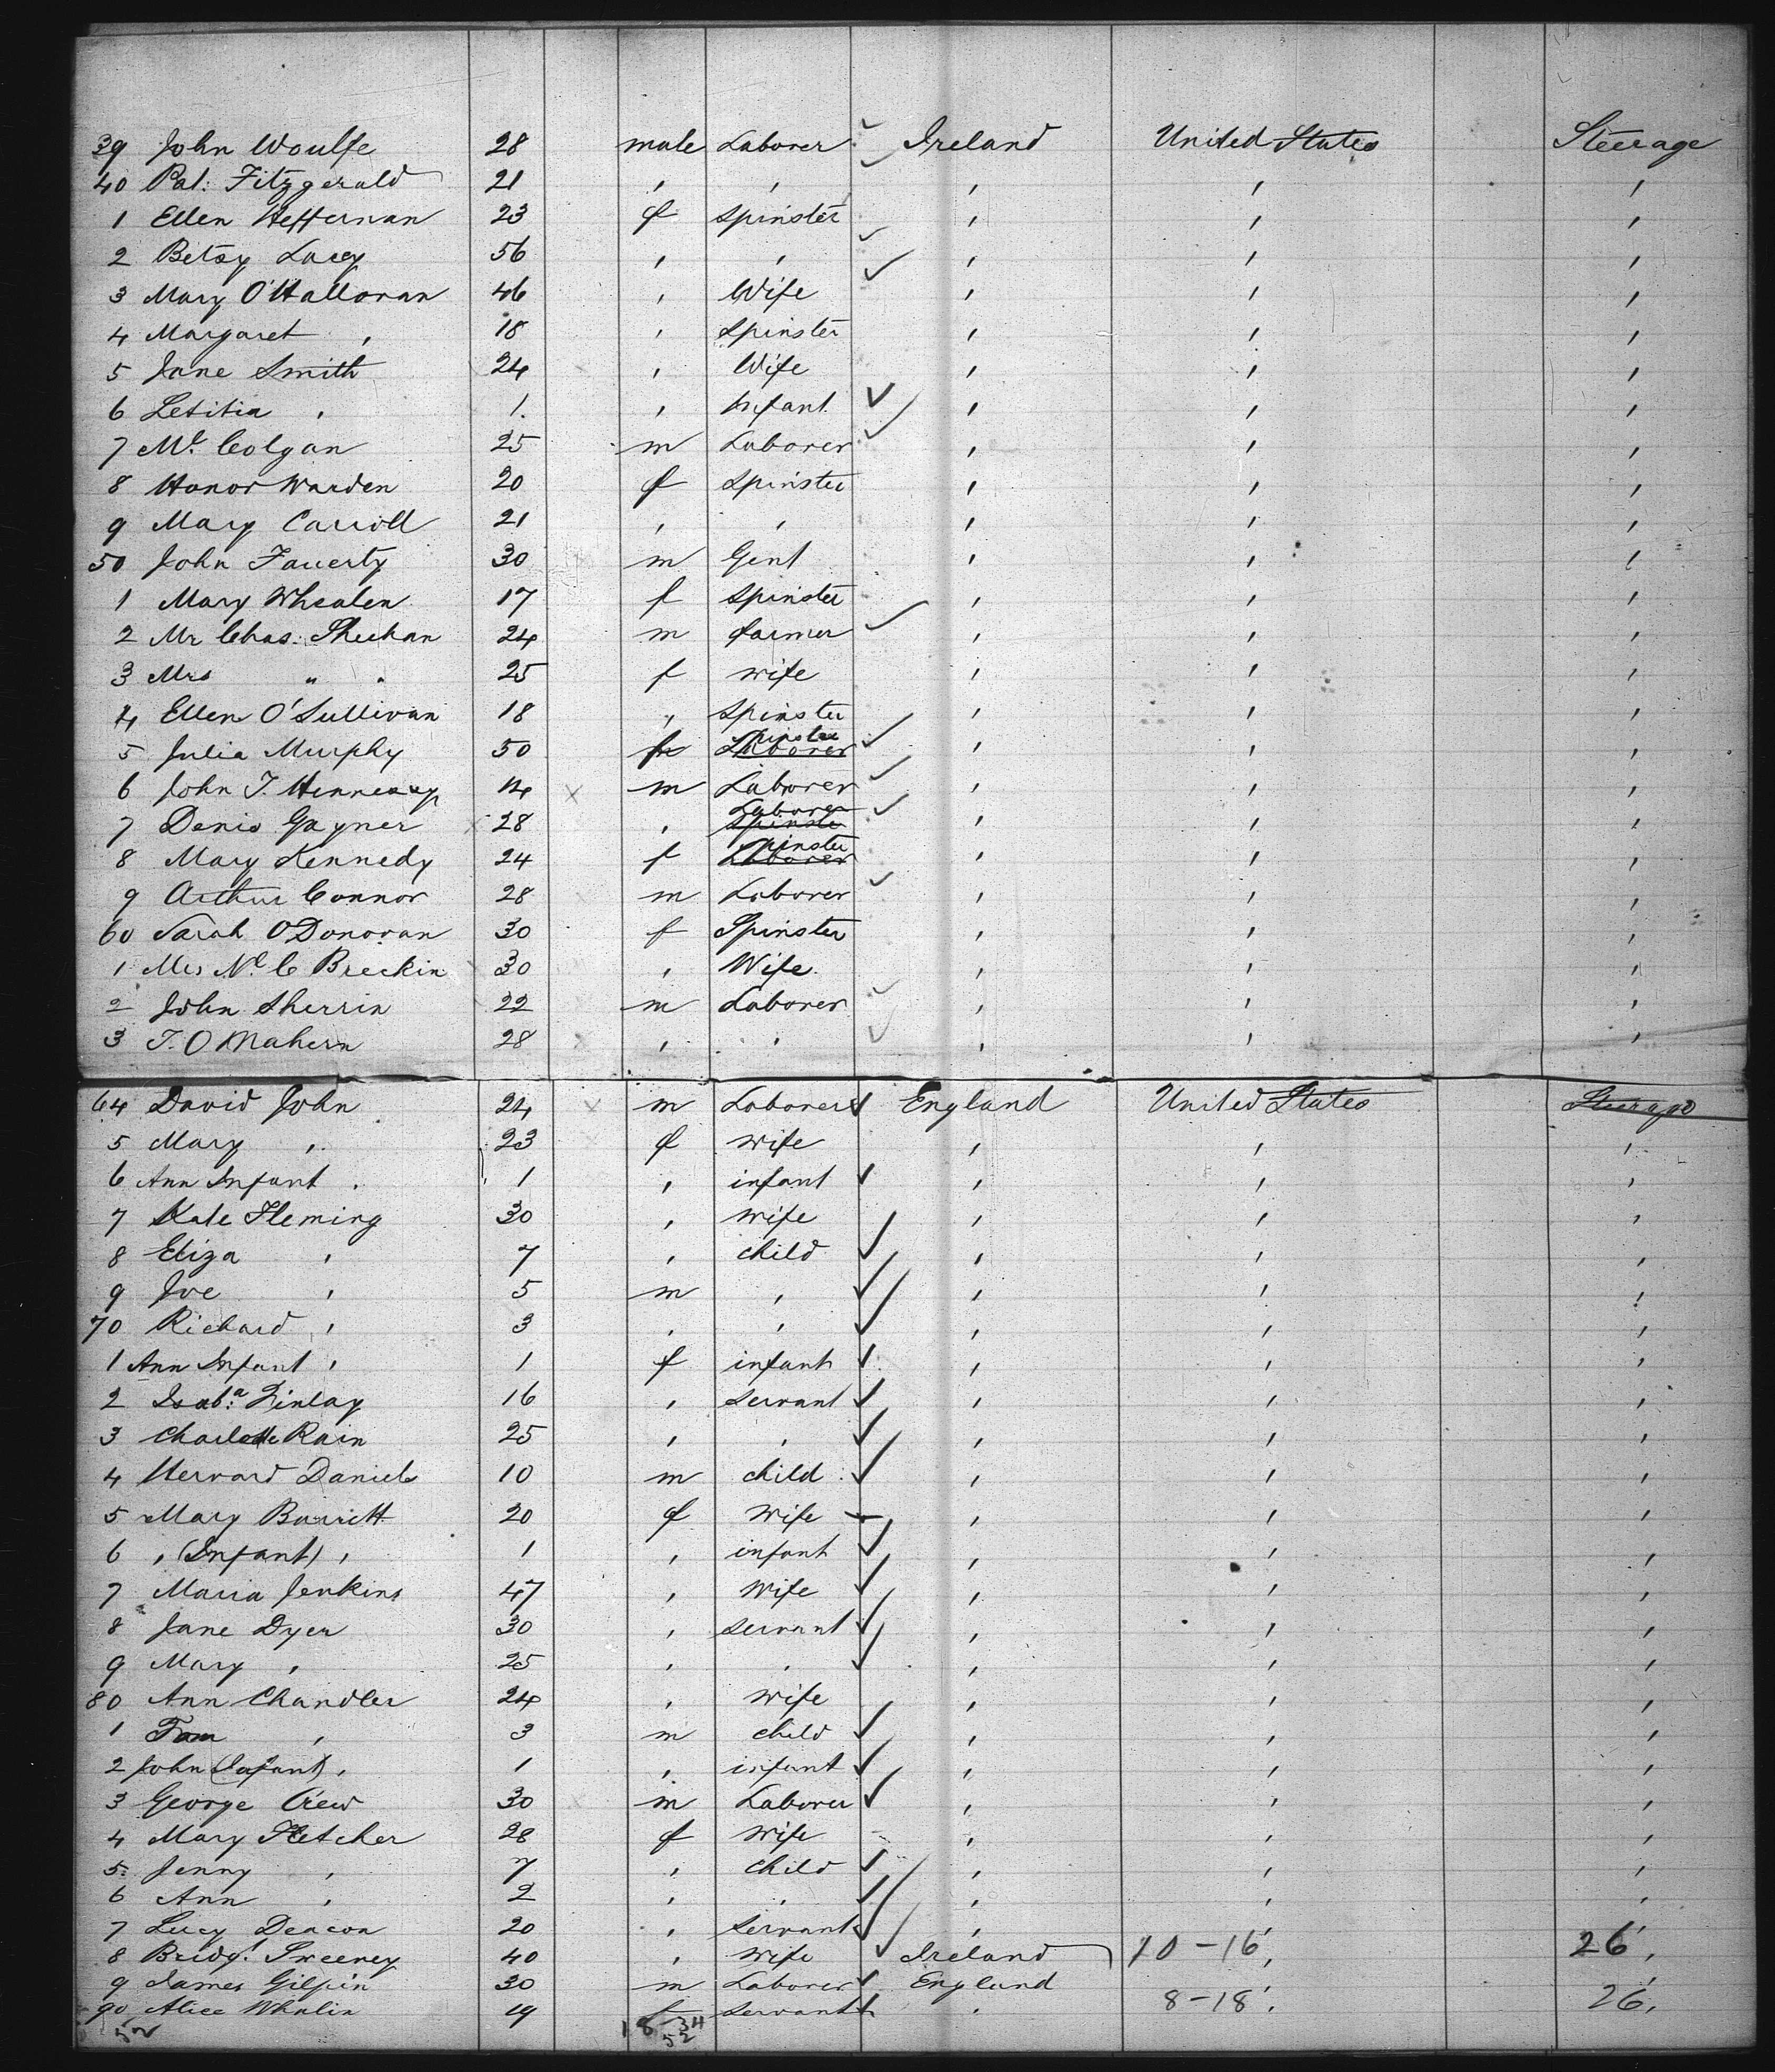 39 John Woulfe 28 male Laborer Ireland United States Steerage
40 Pat: Fitzgerald 21 , , , , ,
1 Ellen Heffernan 23 f Spinster , , ,
2 Betsy Lacey 56 , , , , ,
3 Mary O'Halloran 46 , Wife , , ,
4 Margaret , 18 , Spinster , , ,
5 Jane Smith 24 , Wife , , ,
6 Letitia , 1. , Infant , , ,
7 Mc. Colgan 25 m Laborer , , ,
8 Honor Warden 20 f Spinster , , ,
9 Mary Carroll 21 , , , , ,
50 John Faverty 30 m Gent , , ,
1 Mary Whealen 17 f Spinster , , ,
2 Mr Chas: Sheehan 24 m farmer , , ,
3 Mrs " " 25 f wife , , ,
4 Ellen O'Sullivan 18 " Spinster , , ,
5 Julia Murphy 50 f Laborer pinster , , ,
6 John T. Hennessy 14 m Laborer , , ,
7 Denis Gayner 28 , Spinste Laborer , , ,
8 Mary Kennedy 24 f Laborer pinster , , ,
9 Arthur Connor 28 m Laborer , , ,
60 Sarah O'Donovan 30 f Spinster , , ,
1 Mrs Breckin 30 , Wife. , , ,
2 John Sherrin 22 m Laborer , , ,
3 T. O Mahern 28 , , , , ,
64 David John 24 m Laborer England United States Steerage
5 Mary , 23 f wife , , ,
6 Ann Infant , 1 , infant , , ,
7 Kate Fleming 30 , wife , , ,
8 Eliza , 7 , child , , ,
9 Joe , 5 m , , , ,
70 Richard , 3 , , , , ,
1 Ann Infant , 1 f infant , , ,
2 Isab:a Finlay 16 , servant , , ,
3 Charlotte Rain 25 , , , , ,
4 Daniels 10 m child , , ,
5 Mary Barrett 20 f wife , , ,
6 , (Infant) , 1 , infant , , ,
7 Maria Jenkins 47 , wife , , ,
8 Jane Dyer 30 , servant , , ,
9 Mary , 25 , , , , ,
80 Ann Chandler 24 , wife , , ,
1 Tom , 3 m child , , ,
2 John (Infant) , 1 , infant , , ,
3 George Crew 30 m Laborer , , ,
4 Mary Fletcher 28 f wife , , ,
5 Jenny , 7 , child , , ,
6 Ann , 2 , , , , ,
7 Lucy Deacon 20 , servant , , ,
8 Bridgt Sweeney 40 , wife Ireland 10-16 , 26 ,
9 James Gilpin 30 m Laborer England , ,
90 Alice Whalin 19 f servant , 8-18 , 26 ,
52 18-34
52